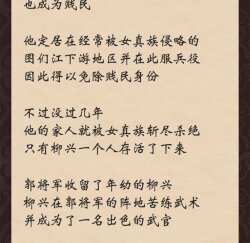 也成为贱民
他定居在经常被女真族侵略的
图们江下游地区并在此服兵役
因此得以免除贱民身份
不过没过几年
他的家人就被女真族斩尽杀绝
只有柳兴一个人存活了下来
郭将军收留了年幼的柳兴
柳兴在郭将军的阵地苦练武术
并成为了一名出色的武官